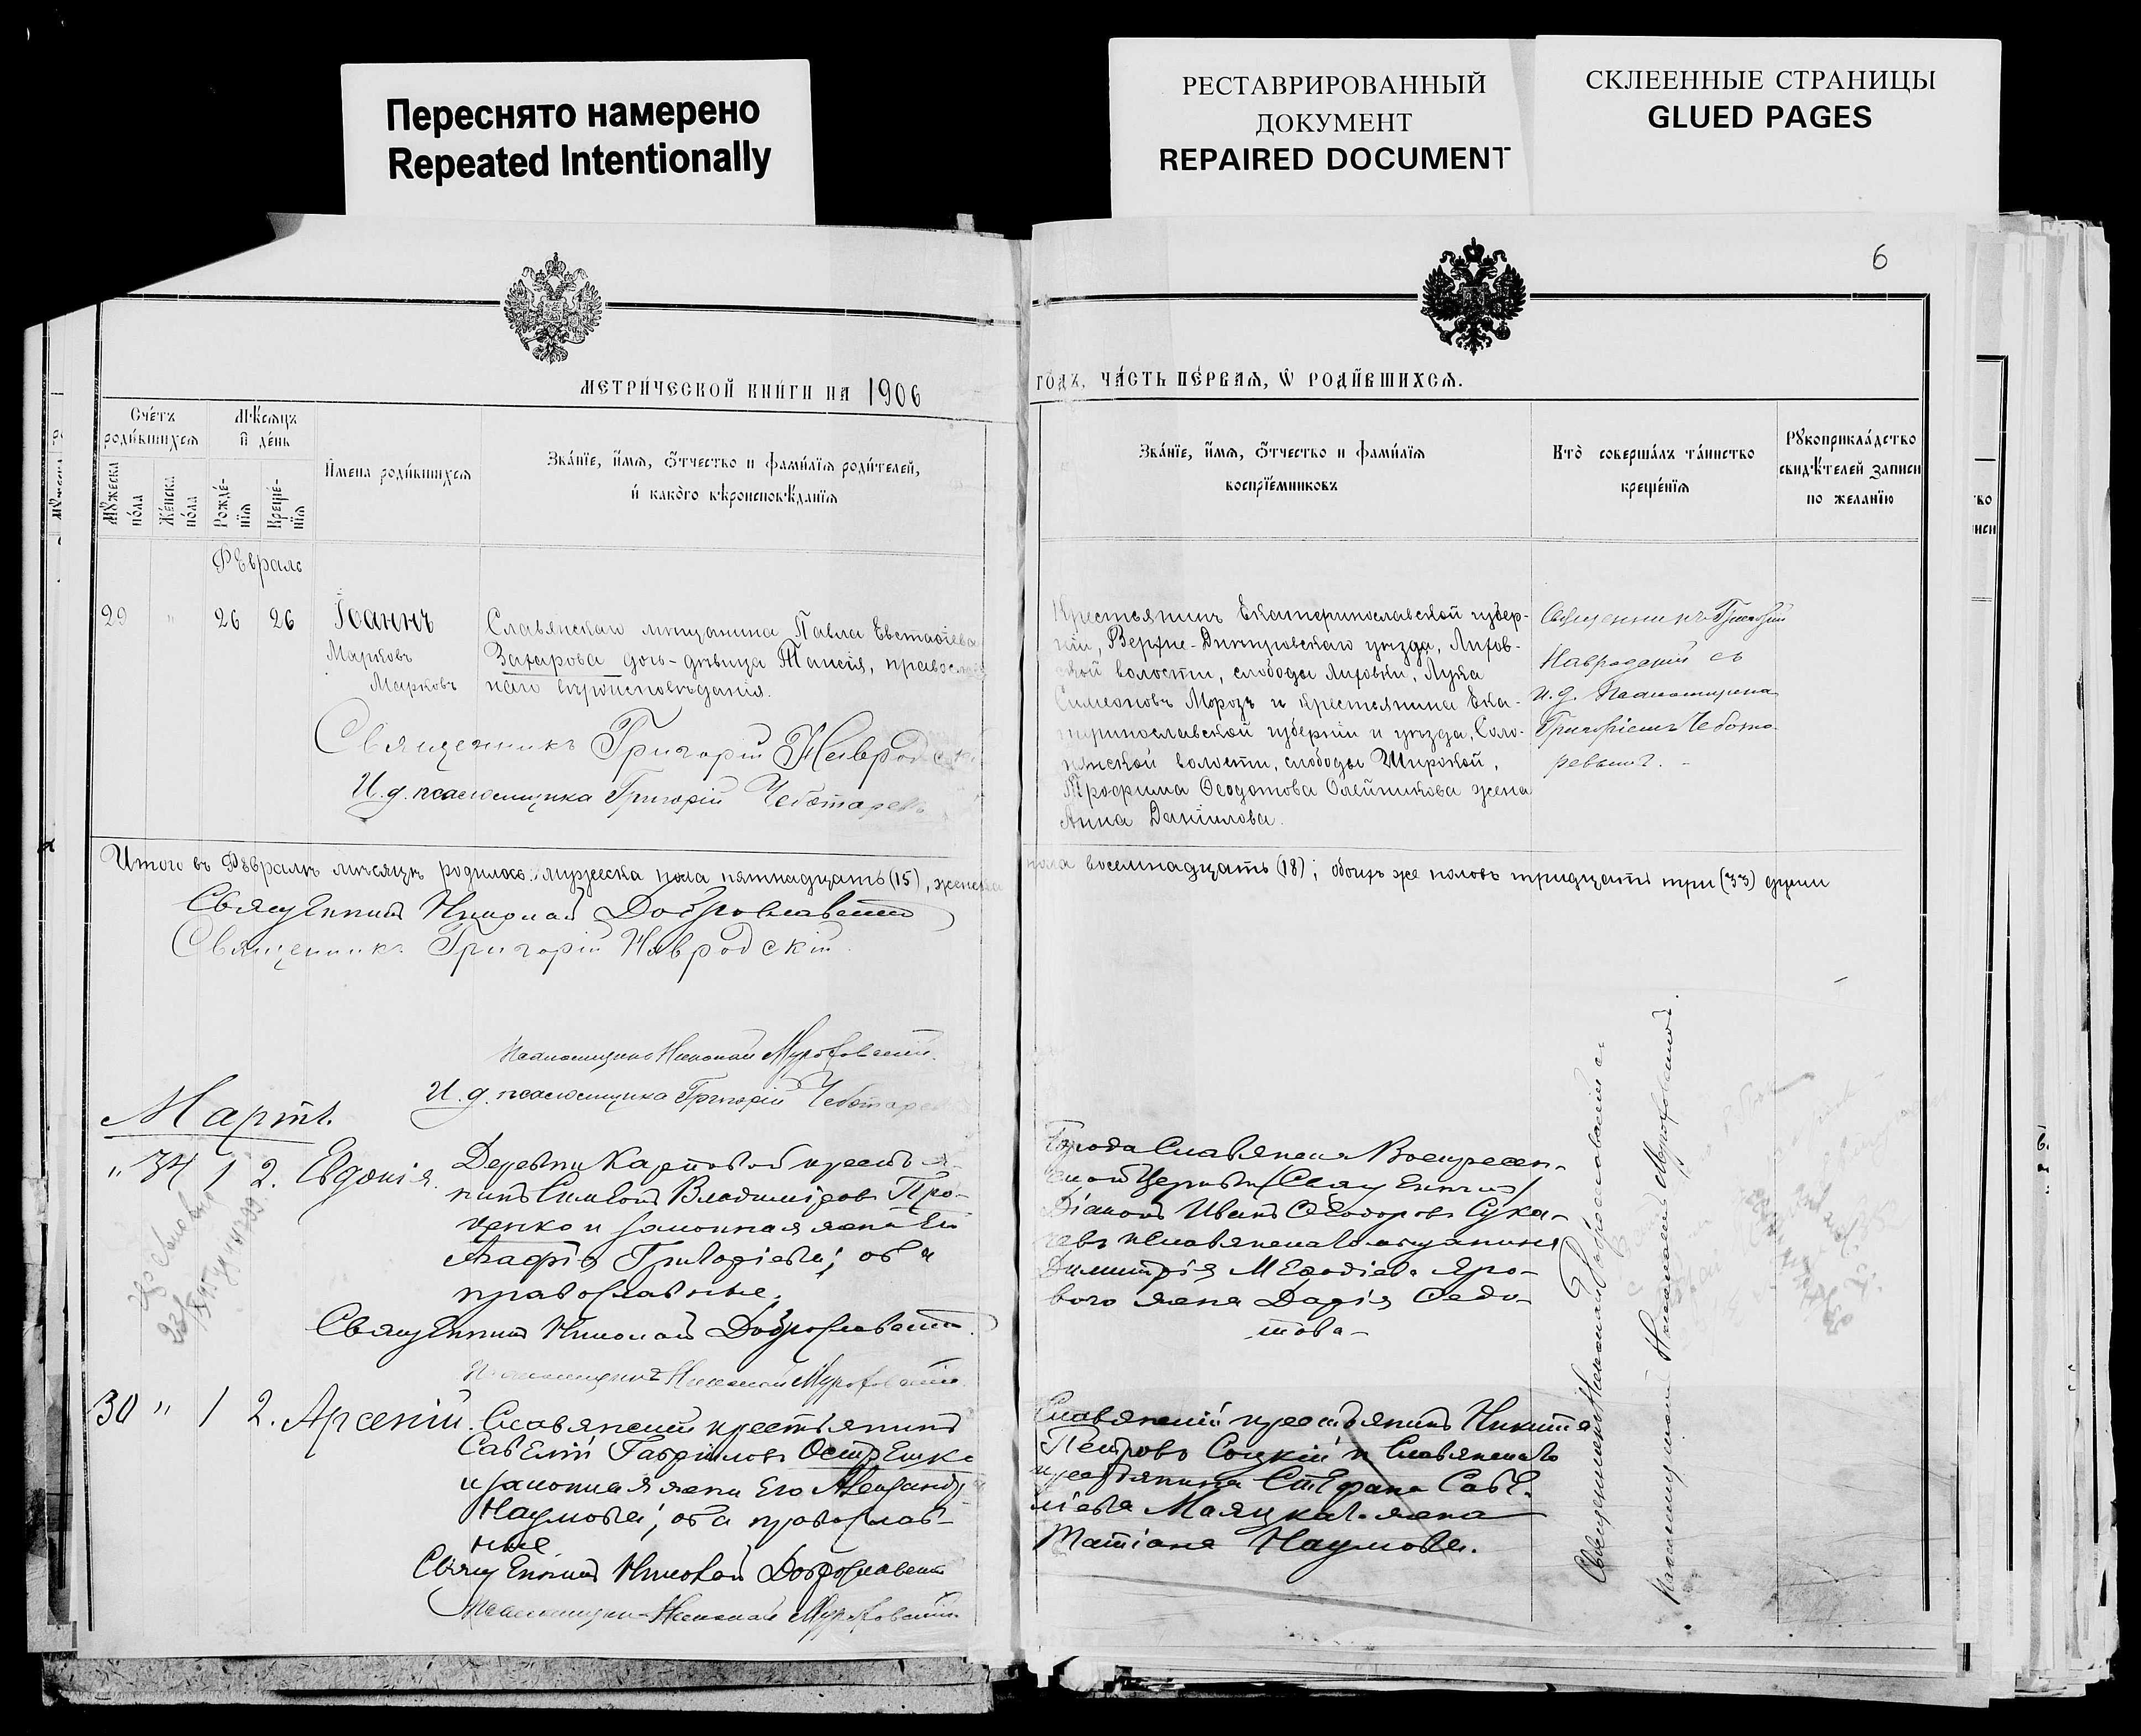 Переснято намерено
Repeated Intentionally
РЕСТАВРИРОВАННЫЙ
ДОКУМЕНТ
REPAIRED DOCUMENT
СКЛЕЕННЫЕ СТРАНИЦЫ
GLUED PAGES
6
МЕТРИ́ЧЕСКОЙ КНИ́ГИ НА 1906
ГО́ДЪ, ЧА́СТЬ ПЕ́РВАѦ, Ѡ РОДИ́ВШИХСѦ.
Сче́тъ
роди́вшихсѧ
Мѣ́сѧцъ
и де́нь
Мꙋ́жеска
по́ла
Же́нска
по́ла
Рожде́-
нїѧ
Креще́-
нїѧ
И́мена роди́вшихсѧ
Зва́нїе, и́мѧ, ѻ́тчество и фами́лїѧ роди́телей,
и како́го вѣроисповѣ́данїѧ
Зва́нїе, и́мѧ, ѻ́тчество и фами́лїѧ
воспрїе́мниковъ
Кто̀ соверша́лъ та́инство
креще́нїѧ
Рꙋкоприкла́дство
свидѣ́телей записи
по жела́нїю
Февраль
29 " 26 26 Іоаннъ
Марковъ
Марковъ
Славянскаго мѣщанина Павла Евстафіева
Захарова дочь-дѣвица Таисія, православ
наго вѣроисповѣданія.
Священникъ Григорій Навродскій
И. д. псаломщика Григорій Чеботаревъ
Крестьянинъ Екатеринославской губер-
ніи, Верхне-Днѣпровскаго уѣзда, Лихов-
ской волости, слободы Лиховки, Лука
Симеоновъ Морозъ и крестьянина Ека-
теринославской губерніи и уѣзда, Соло-
нянской волости, слободы Широкой,
Трофима Ѳеодотова Олейникова жена
Анна Даніилова.
Священникъ Григорій
Навродскій съ
и. д. псаломщика
Григоріемъ Чебота-
ревымъ.
Итого въ Февралѣ мѣсяцѣ родилось: мужеска пола пятнадцать (15), женска
пола восемнадцать (18); обоихъ же половъ тридцать три (33) души
Священникъ Николай Доброславскій
Священникъ Григорій Навродскій
Псаломщикъ Николай
И. д. псаломщика Григорій Чеботаревъ
Мартъ.
" 34 1 2. Евдокія.
Деревни Карповой крестья-
нинъ Симеонъ Владиміровъ Про-
ценко и законная жена его
Агафія Григоріева; оба
православные.
Священникъ Николай Доброславскій
Псаломщикъ Николай
Города Славянска Воскресен-
ской Церкви (Священникъ)
Діаконъ Иванъ Ѳеодоровъ Сука-
чевъ и Славянскаго мѣщанина
Димитрія Меѳодіева Яро-
вого жена Дарія Ѳедо-
това
30 " 1 2. Арсеній.
Славянскій крестьянинъ
Савелій Гавріиловъ Остр
и законная жена его Александра
Наумова; оба православ-
ные
Священникъ Николай Доброславскій
Псаломщикъ Николай
Славянскій крестьянинъ Никита
Петровъ Соцкій и Славянскаго
крестьянина Стефана Саве-
ліева Маяцкаго жена
Татіана Наумова.
Священникъ Николай Доброславскій съ
псаломщикомъ Николаемъ